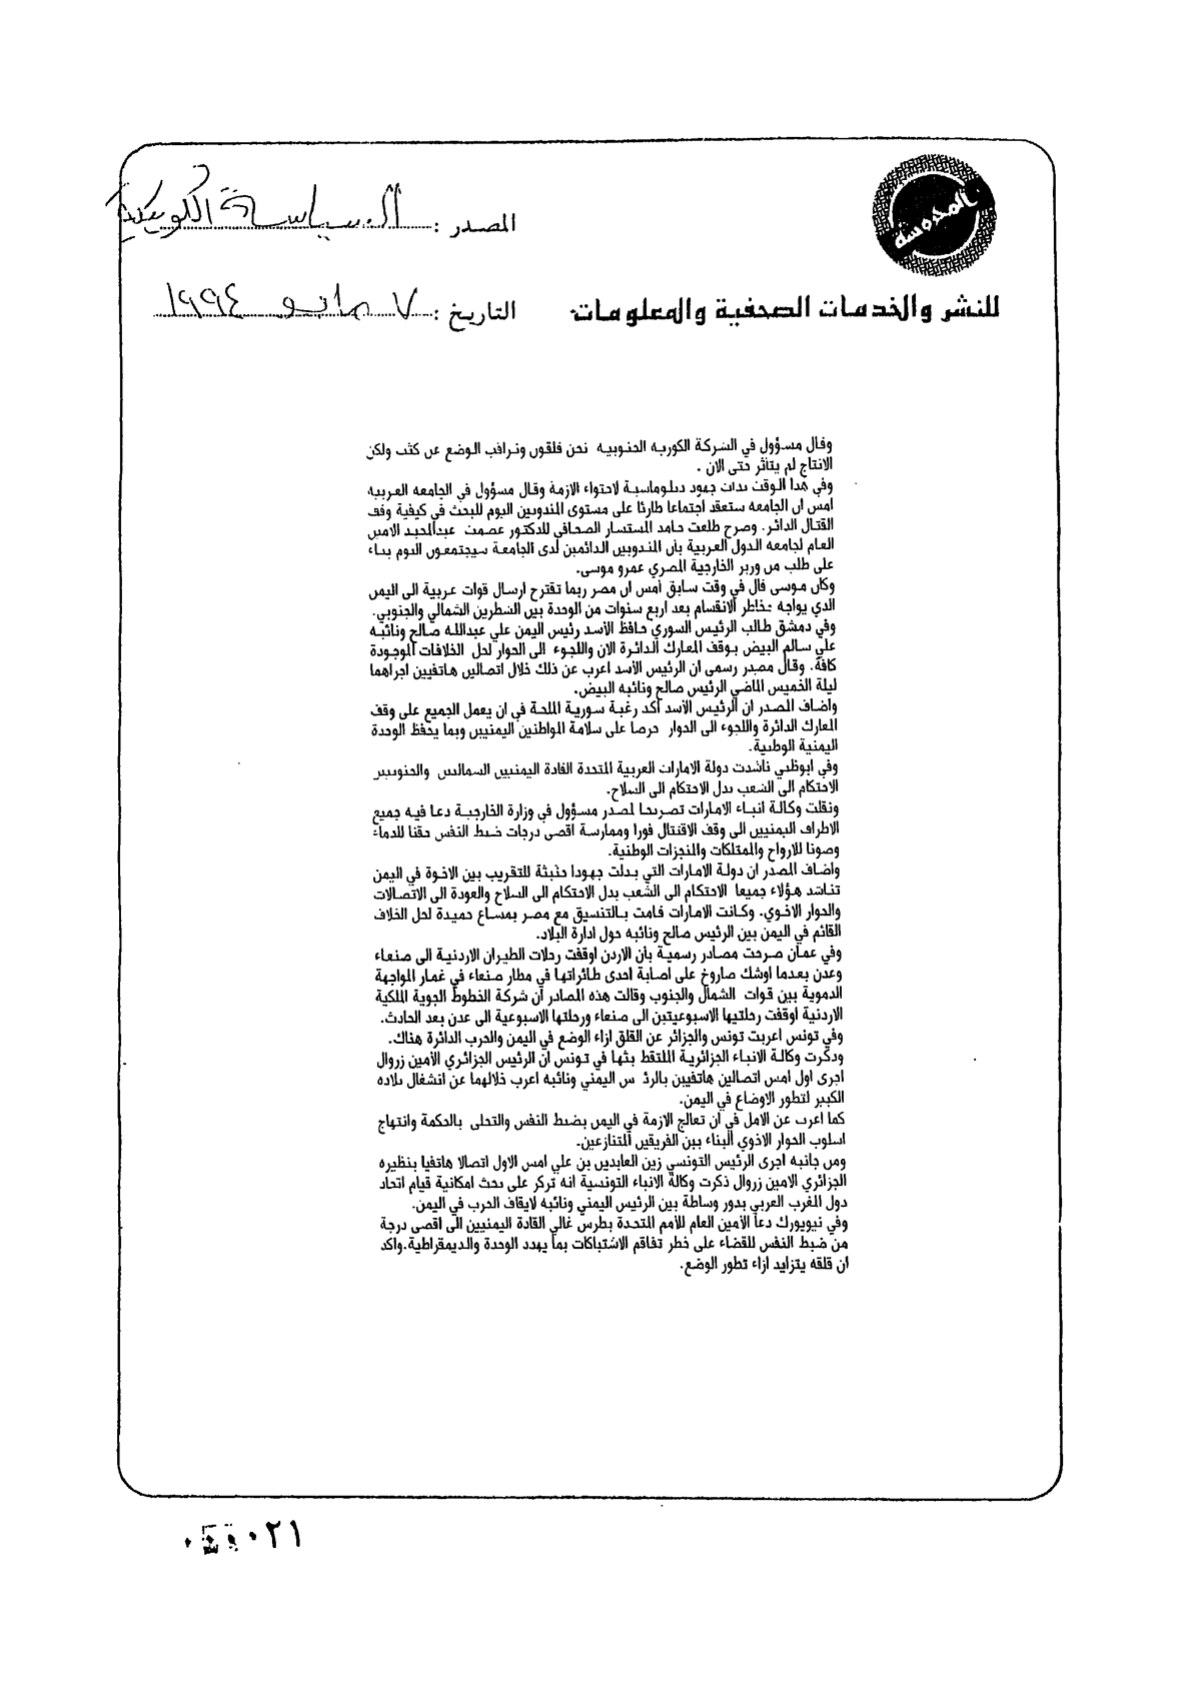 المحروسة
المصدر : السياسة الكويتية
للنشر والخدمات الصحفية والمعلومات
التاريخ : ٧ مايو ١٩٩٤
وقال مسؤول في الشركة الكورية الجنوبية نحن قلقون ونراقب الوضع عن كثب ولكن
الانتاج لم يتاثر حتى الان .
وفي هذا الوقت بدات جهود دبلوماسية لاحتواء الازمة وقال مسؤول في الجامعه العربيه
امس ان الجامعه ستعقد اجتماعا طارئا على مستوى المندوبين اليوم للبحث في كيفية وقف
القتال الدائر. وصرح طلعت حامد المستشار الصحافي للدكتور عصمت عبدالمجيد الامين
العام لجامعه الدول العربية بان المندوبين الدائمين لدى الجامعة سيجتمعون اليوم بناء
على طلب من وزير الخارجية المصري عمرو موسى.
وكان موسى قال في وقت سابق امس ان مصر ربما تقترح ارسال قوات عربية الى اليمن
الذي يواجه مخاطر الانقسام بعد اربع سنوات من الوحدة بين الشطرين الشمالي والجنوبي.
وفي دمشق طالب الرئيس السوري حافظ الأسد رئيس اليمن علي عبدالله صالح ونائبه
علي سالم البيض بوقف المعارك الدائرة الان واللجوء الى الحوار لحل الخلافات الموجودة
كافة. وقال مصدر رسمى ان الرئيس الأسد اعرب عن ذلك خلال اتصالين هاتفيين اجراهما
ليلة الخميس الماضي الرئيس صالح ونائبه البيض.
واضاف المصدر ان الرئيس الأسد أكد رغبة سورية الملحة في ان يعمل الجميع على وقف
المعارك الدائرة واللجوء الى الحوار حرصا على سلامة المواطنين اليمنيين وبما يحفظ الوحدة
اليمنية الوطنية.
وفي ابوظبي ناشدت دولة الامارات العربية المتحدة القادة اليمنيين الشماليين والجنوبيين
الاحتكام الى الشعب بدل الاحتكام الى السلاح.
ونقلت وكالة انباء الامارات تصريحا لمصدر مسؤول في وزارة الخارجية دعا فيه جميع
الاطراف اليمنيين الى وقف الاقتتال فورا وممارسة اقصى درجات ضبط النفس حقنا للدماء
وصونا للارواح والممتلكات والمنجزات الوطنية.
واضاف المصدر ان دولة الامارات التي بذلت جهودا حثيثة للتقريب بين الاخوة في اليمن
تناشد هؤلاء جميعا الاحتكام الى الشعب بدل الاحتكام الى السلاح والعودة الى الاتصالات
والحوار الاخوي. وكانت الامارات قامت بالتنسيق مع مصر بمساع حميدة لحل الخلاف
القائم في اليمن بين الرئيس صالح ونائبه حول ادارة البلاد.
وفي عمان صرحت مصادر رسمية بأن الاردن اوقفت رحلات الطيران الاردنية الى صنعاء
وعدن بعدما اوشك صاروخ على اصابة احدى طائراتها في مطار صنعاء في غمار المواجهة
الدموية بين قوات الشمال والجنوب وقالت هذه المصادر أن شركة الخطوط الجوية الملكية
الاردنية اوقفت رحلتيها الاسبوعيتين الى صنعاء ورحلتها الاسبوعية الى عدن بعد الحادث.
وفي تونس اعربت تونس والجزائر عن القلق ازاء الوضع في اليمن والحرب الدائرة هناك.
وذكرت وكالة الانباء الجزائرية الملتقط بثها في تونس ان الرئيس الجزائري الأمين زروال
اجرى اول امس اتصالين هاتفيين بالرئيس اليمني ونائبه اعرب خلالهما عن انشغال بلاده
الكبير لتطور الاوضاع في اليمن.
كما اعرب عن الامل في ان تعالج الازمة في اليمن بضبط النفس والتحلى بالحكمة وانتهاج
اسلوب الحوار الاخوي البناء بين الفريقين المتنازعين.
ومن جانبه اجرى الرئيس التونسي زين العابدين بن علي امس الاول اتصالا هاتفيا بنظيره
الجزائري الامين زروال ذكرت وكالة الانباء التونسية انه تركز على بحث امكانية قيام اتحاد
دول المغرب العربي بدور وساطة بين الرئيس اليمني ونائبه لايقاف الحرب في اليمن.
وفي نيويورك دعا الأمين العام للأمم المتحدة بطرس غالي القادة اليمنيين الى اقصى درجة
من ضبط النفس للقضاء على خطر تفاقم الاشتباكات بما يهدد الوحدة والديمقراطية.واكد
ان قلقه يتزايد ازاء تطور الوضع.